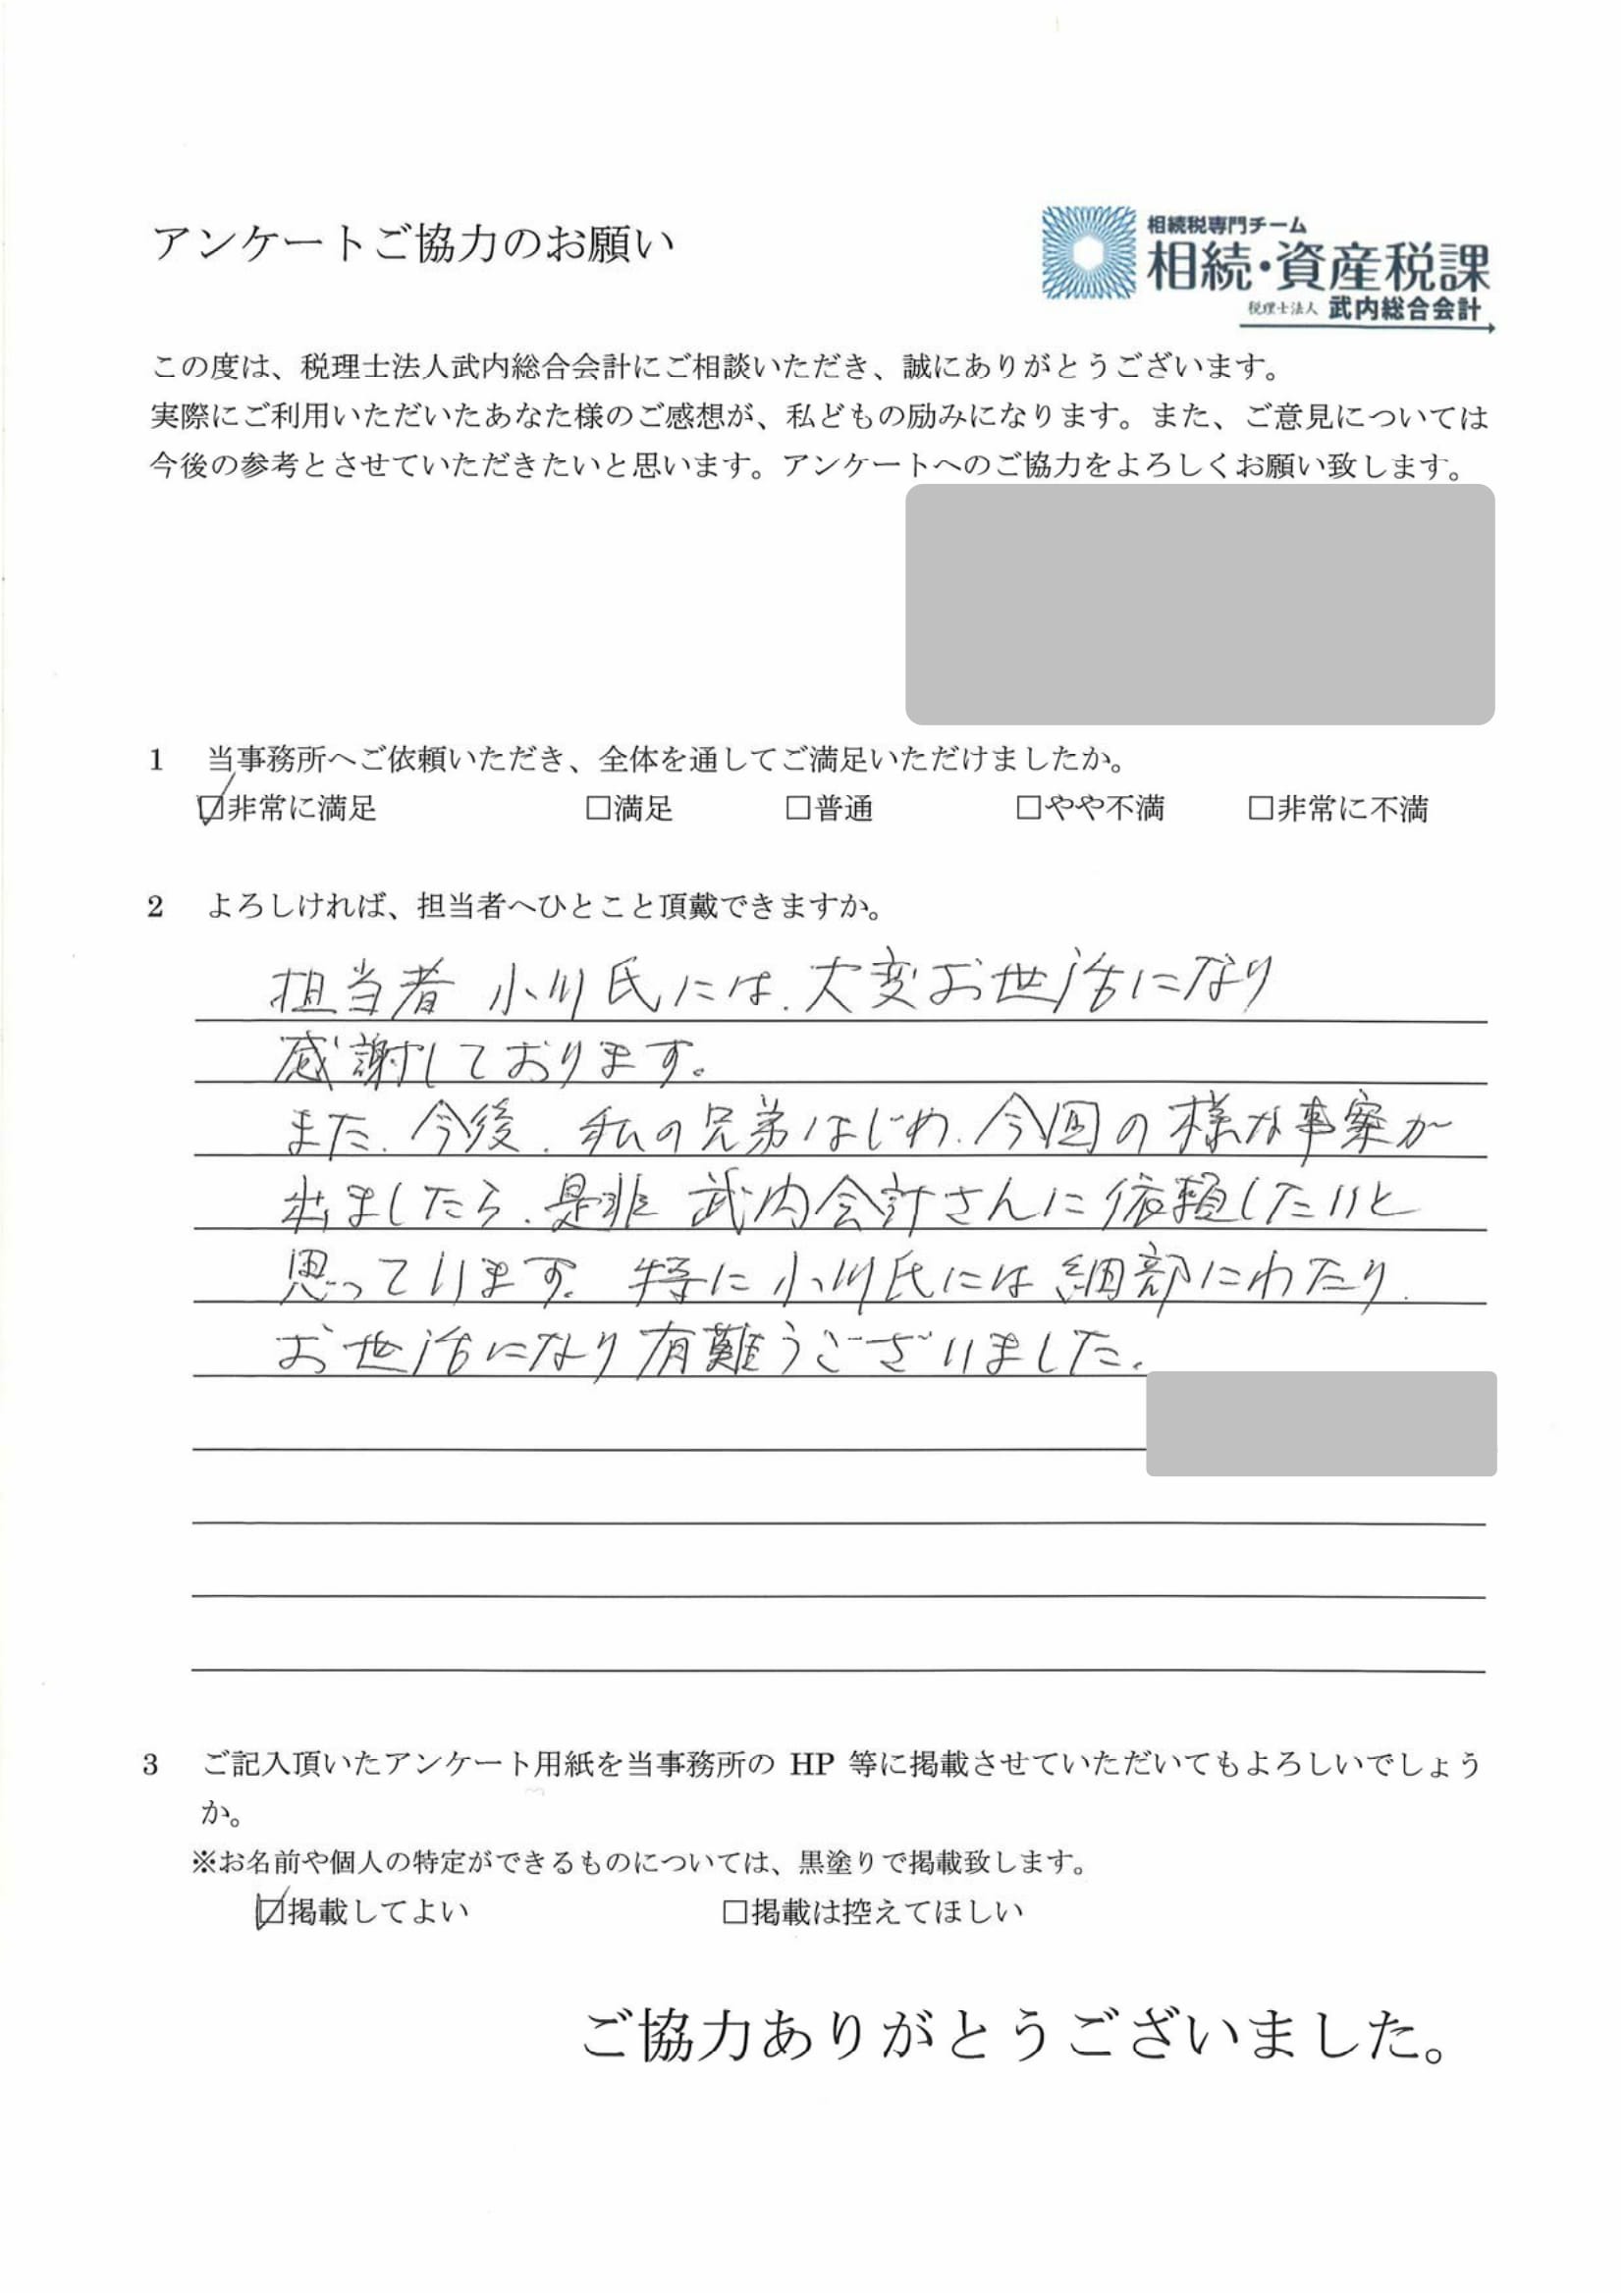 アンケートご協力のお願い
相続税専門チーム
相続・資産税課
税理士法人 武内総合会計
この度は、税理士法人武内総合会計にご相談いただき、誠にありがとうございます。
実際にご利用いただいたあなた様のご感想が、私どもの励みになります。また、ご意見については
今後の参考とさせていただきたいと思います。アンケートへのご協力をよろしくお願い致します。
1 当事務所へご依頼いただき、全体を通してご満足いただけましたか。
☑非常に満足 □満足 □普通 □やや不満 □非常に不満
2 よろしければ、担当者へひとこと頂戴できますか。
担当者 小川氏には、大変お世話になり
感謝しております。
また、今後、私の兄弟はじめ、今回の様な事案が
出ましたら、是非 武内会計さんに依頼したいと
思っています。特に小川氏には細部にわたり、
お世話になり有難うございました。
3 ご記入頂いたアンケート用紙を当事務所の HP 等に掲載させていただいてもよろしいでしょう
か。
※お名前や個人の特定ができるものについては、黒塗りで掲載致します。
☑掲載してよい □掲載は控えてほしい
ご協力ありがとうございました。